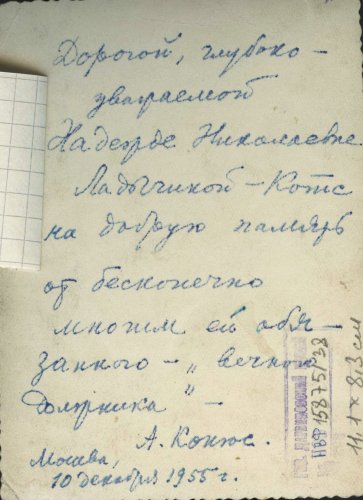 Дорогой, глубоко-
уважаемой
Надежде Николаевне
Ладычиной-Котс
на добрую память
от бесконечно
многим ей обя-
занного - "вечного
должника" -
А. Котс.
Москва,
10 декабря 1955 г.
НВФ 15875/38
11.7 × 8,3 см